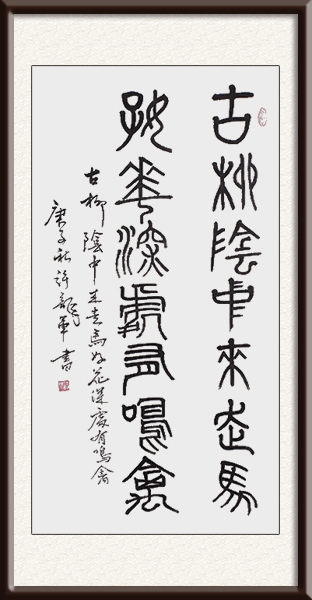 古柳陰中來走馬
好花深處有鳴禽
古柳陰中來走馬好花深處有鳴禽
庚子秋許龍軍書